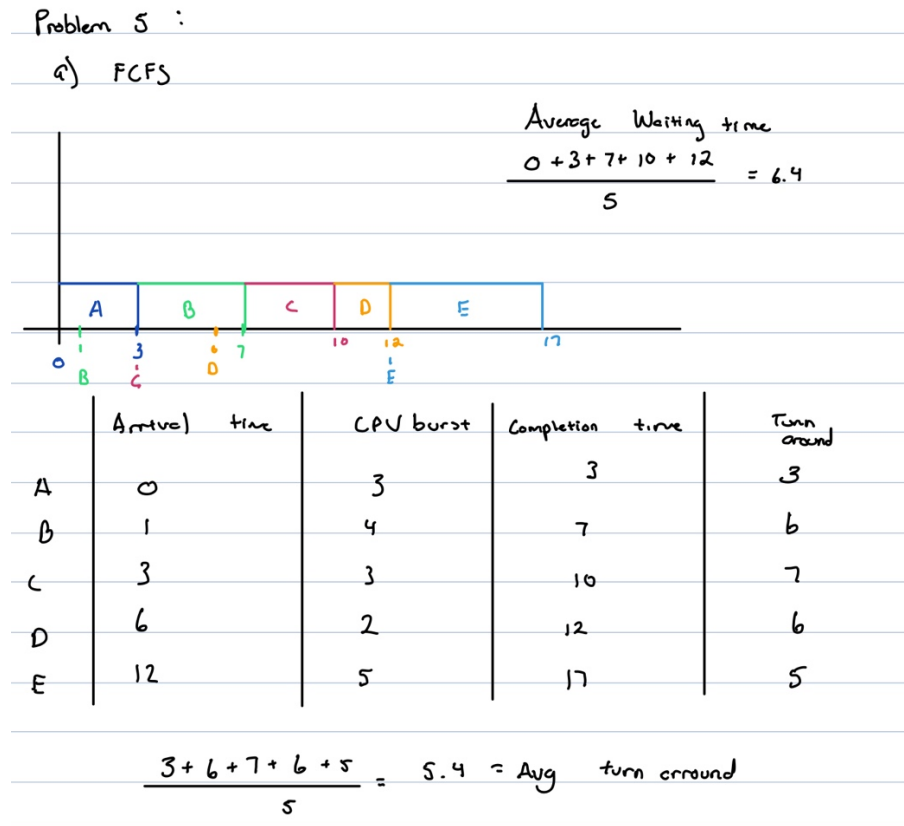 Problem 5 :
a) FCFS
Average Waiting time
0 + 3 + 7 + 10 + 12
5
= 6.4
A B C D E
0 3 7 10 12 17
B C D E
Arrival time CPU burst Completion time Turn around
A 0 3 3 3
B 1 4 7 6
C 3 3 10 7
D 6 2 12 6
E 12 5 17 5
3 + 6 + 7 + 6 + 5
5
= 5.4 = Avg turn arround